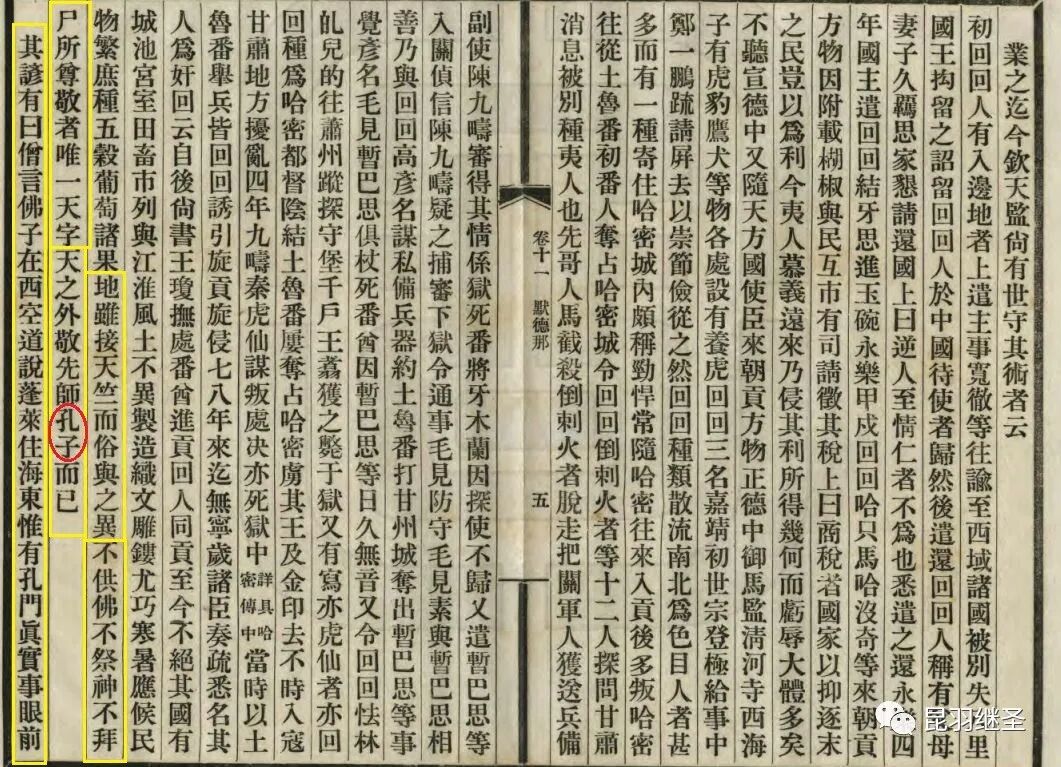 業之迄今欽天監尚有世守其術者云
初回回人有入邊地者上遣主事寬徹等往諭至西域諸國被別失八里
國王拘留之詔留回回人於中國待使者歸然後遣還回回人稱有父母
妻子久羈思家懇請還國上曰逆人至情仁者不爲也悉遣之還永樂四
年國主遣回回結牙思進玉碗永樂甲戌回回哈只馬哈沒奇等來朝貢
方物因附載糊椒與民互市有司請徵其稅上曰商稅者國家以抑逐末
之民豈以爲利今夷人慕義遠來乃侵其利所得幾何而虧辱大體多矣
不聽宣德中又隨天方國使臣來朝貢方物正德中御馬監淸河寺西海
子有虎豹鷹犬等物各處設有養虎回回三名嘉靖初世宗登極給事中
鄭一鵬疏請屏去以崇節儉從之然回回種類散流南北爲色目人者甚
多而有一種寄住哈密城內頗稱勁悍常隨哈密往來入貢後多叛哈密
往從土魯番初番人奪占哈密城令回回倒刺火者等十二人探問甘肅
消息被別種夷人也先哥人馬截殺倒刺火者脫走把關軍人獲送兵備
卷十一 默德那 五
副使陳九疇審得其情係獄死番將牙木蘭因探使不歸又遣暫巴思等
入關偵信陳九疇疑之捕審下獄令通事毛見防守毛見素與暫巴思相
善乃與回回高彥名謀私備兵器約土魯番打甘州城奪出暫巴思等事
覺彥名毛見暫巴思俱杖死番酋因暫巴思等日久無音又令回回怯林
癿兒的往蕭州蹤探守堡千戶王翥獲之斃于獄又有寫亦虎仙者亦回
回種爲哈密都督陰結土魯番屢奪占哈密虜其王及金印去不時入寇
甘肅地方擾亂四年九疇秦虎仙謀叛處决亦死獄中詳具哈密傳中當時以土
魯番舉兵皆回回誘引旋貢旋侵七八年來迄無寧歲諸臣奏疏悉名其
人爲奸回云自後尙書王瓊撫處番酋進貢回人同貢至今不絕其國有
城池宮室田畜市列與江淮風土不異製造織文雕鏤尤巧寒暑應候民
物繁庶種五穀葡萄諸果地雖接天竺而俗與之異不供佛不祭神不拜
尸所尊敬者唯一天字天之外敬先師孔子而已
其諺有曰僧言佛子在西空道說蓬萊住海東惟有孔門眞實事眼前
昆羽继圣